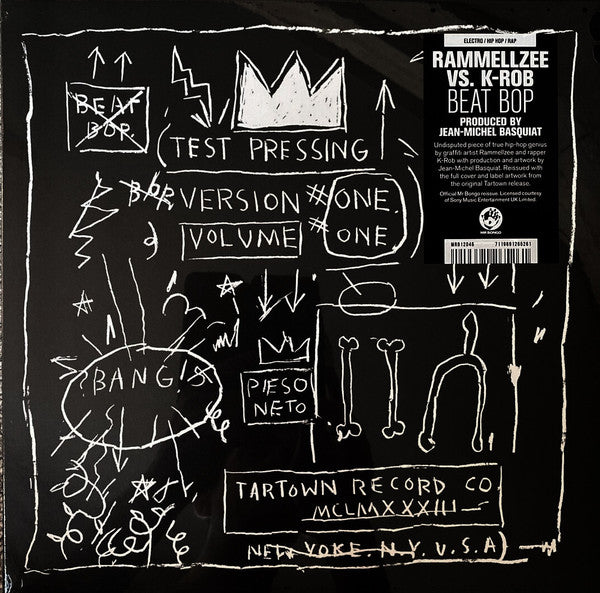 ELECTRO / HIP HOP / RAP
RAMMELLZEE
VS. K-ROB
BEAT BOP
PRODUCED BY
JEAN-MICHEL BASQUIAT
Undisputed piece of true hip-hop genius
by graffiti artist Rammellzee and rapper
K-Rob with production and artwork by
Jean-Michel Basquiat. Reissued with
the full cover and label artwork from
the original Tartown release.
Official Mr Bongo reissue. Licensed courtesy
of Sony Music Entertainment UK Limited.
MR BONGO
MRB12046
7119691260261
BEAT
BOP
(TEST PRESSING)
BOP VERSION #ONE.
VOLUME # ONE.
BANG!
PIESO
NETO
TARTOWN RECORD CO.
MCLMXXXIII
NEW YOKE. N.Y. U.S.A)